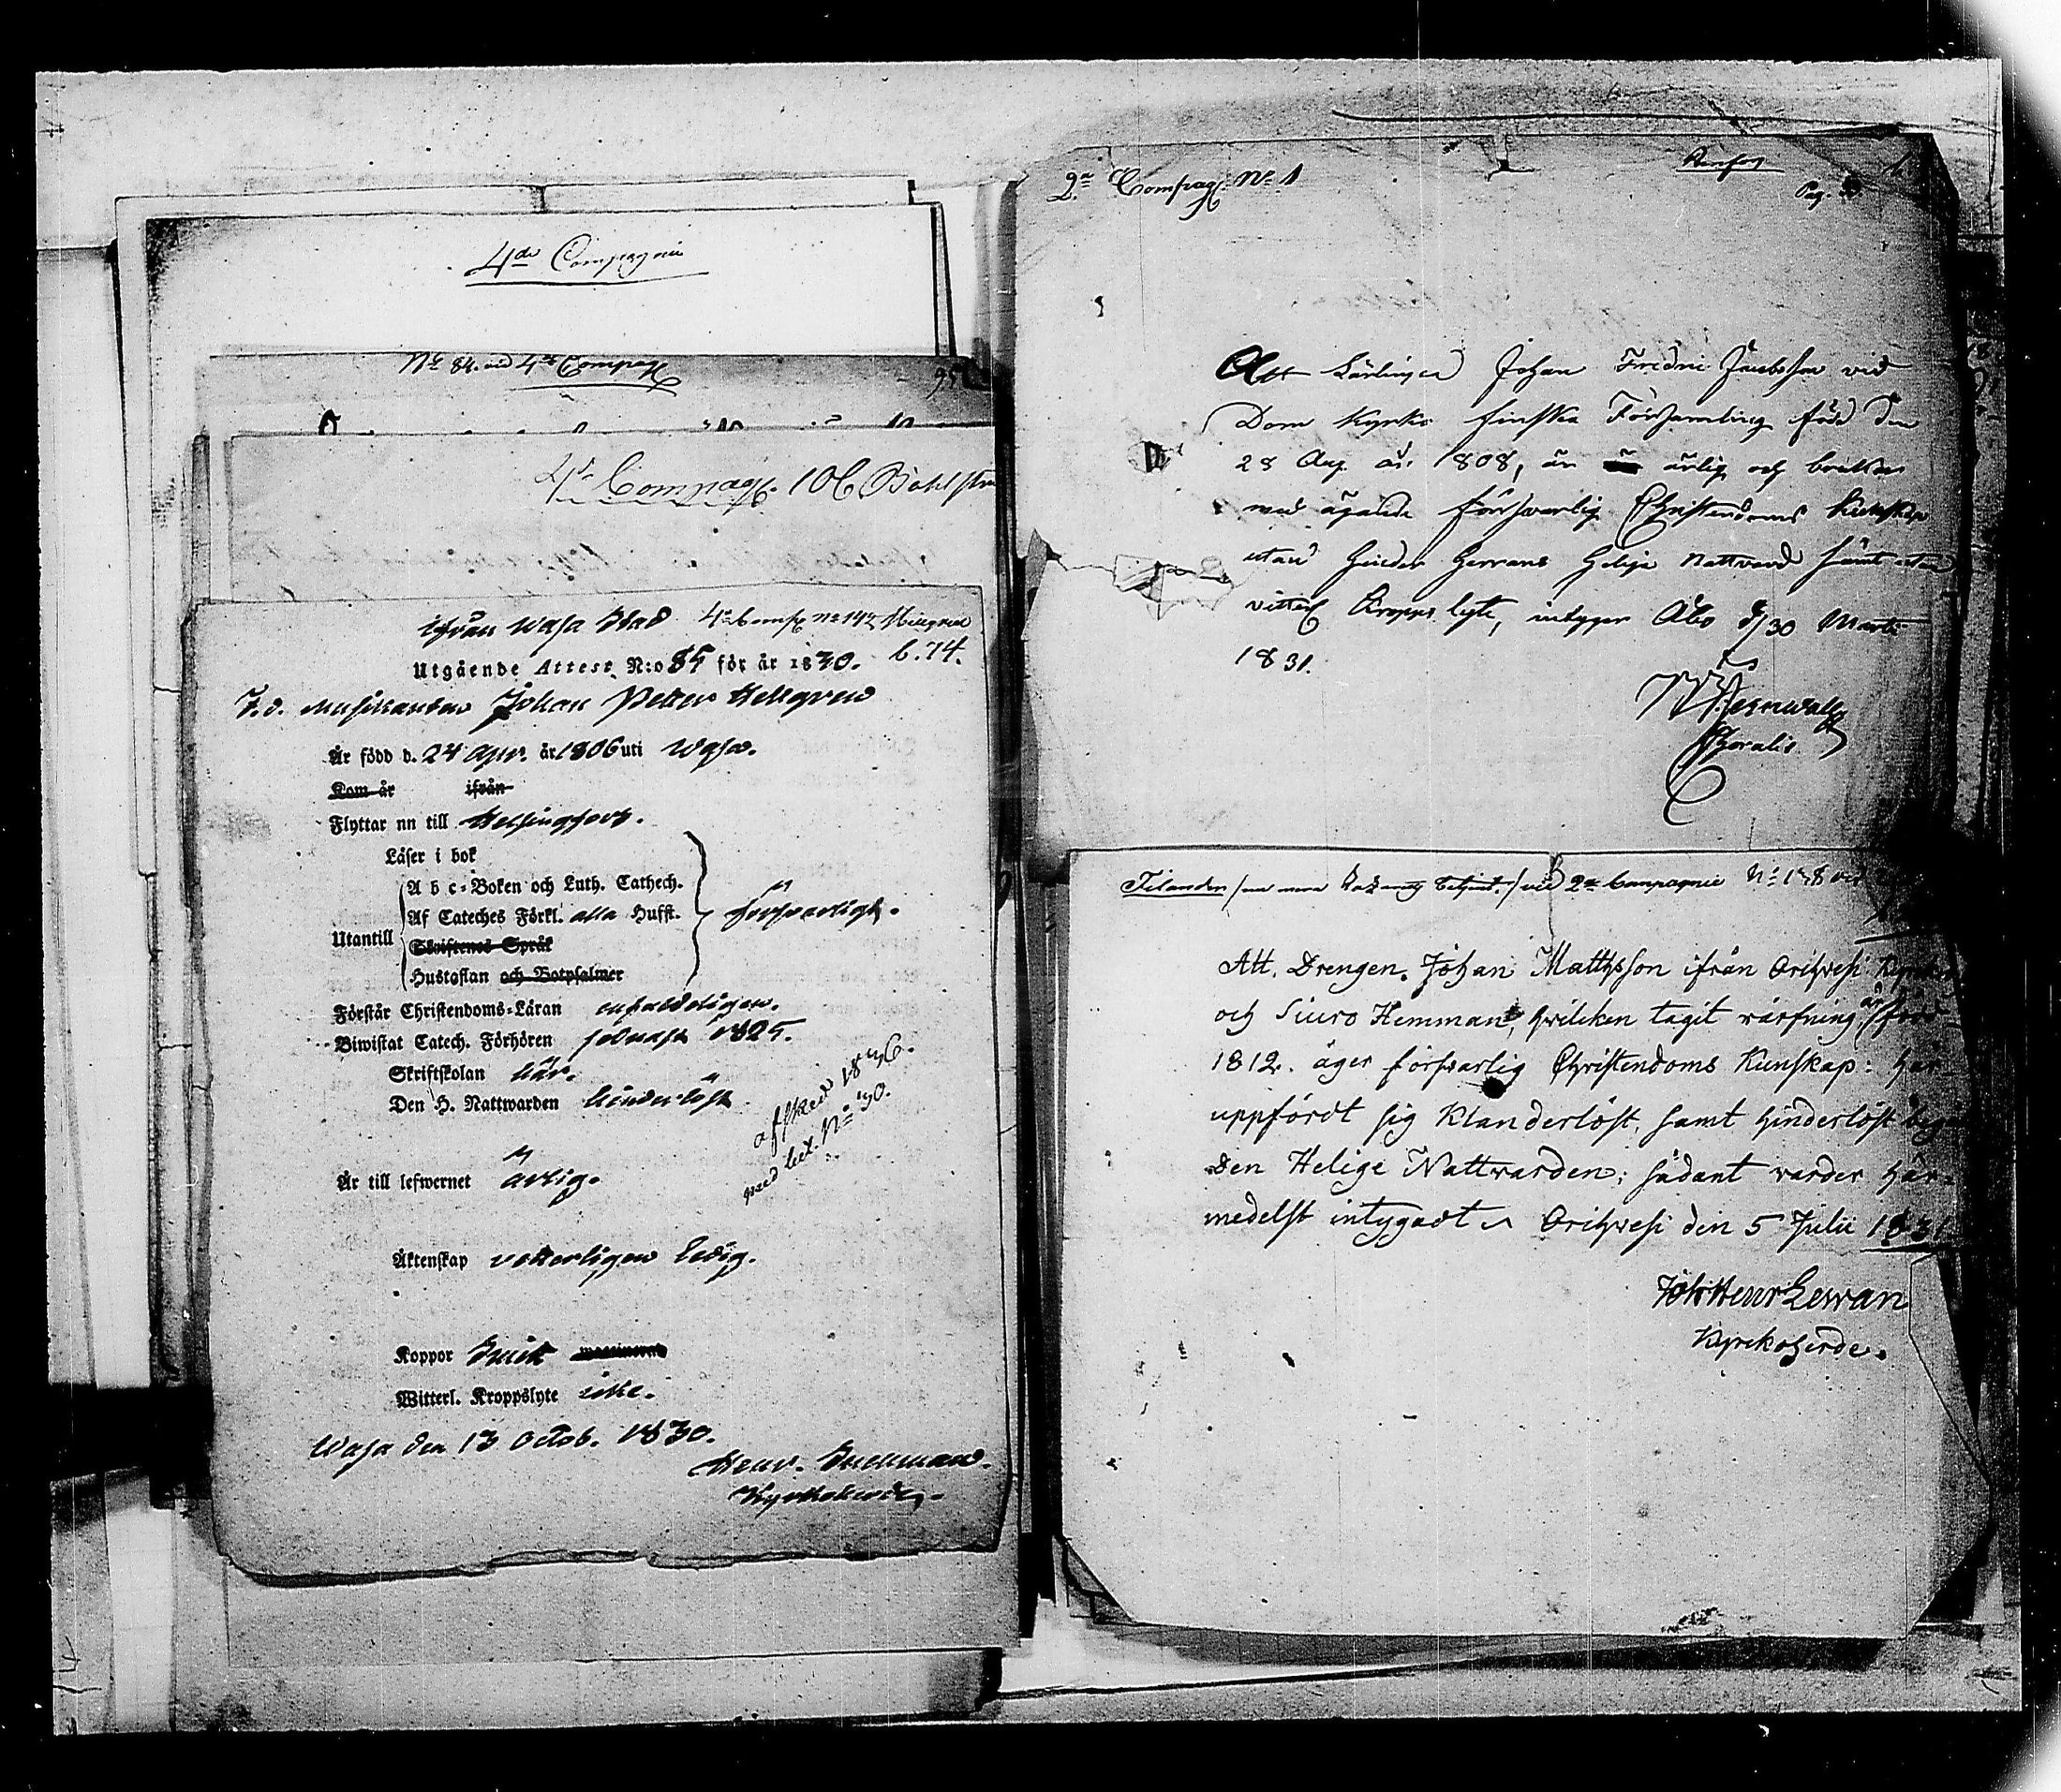 4de Compagnie
No 84. vid 4de Compag
95
4de Compag. 106 Bohlstr
ifrån Wasa Stad 4de Comp No 147 Hellgren
Utgående Attest N:o 85 för år 1830. b. 74.
F. d. Musikanten Johan Petter Hellgren
Är född d. 24 Apr. år 1806 uti Wasa.
Kom år ifrån
Flyttar nu till Helsingfors.
Läser i bok
A b c-Boken och Luth. Cathech.
Af Cateches Förkl. alla Hufst.
Utantill försvarligt.
Skriftenes Språk
Hustaflan och Botpsalmer
Förstår Christendoms-Läran enfaldeligen.
Biwistat Catech. Förhören sednast 1825.
Skriftskolan här.
Den H. Nattwarden hinderlöst
afsked 1836.
med bil. No 30.
Är till lefwernet ärlig.
Äktenskap vetterligen ledig.
Koppor haft
Witterl. Kroppslyte icke.
Wasa den 13 Octob. 1830.
Henr. Backman.
Kyrkoherde.
2a Compag No 1
Pag.
Att Lärlingen Johan Fredric Jacobsson vid
Dom Kyrko finska Församling född den
28 Aug år 1808, är ärlig och
med ägande försvarlig Christendoms kunskap
utan hinder Herrans Helga Nattvard samt utan
vitterl Kropps lyte, intygar Åbo d/30 Martii
1831.
vid 2a Compagnie No 178 vid
Att Drengen Johan Mattsson ifrån Orihvesi Kyrko
och Siuro Hemman, hvilcken tagit värfning, är född
1812. äger försvarlig Christendoms Kunskap: har
uppfördt sig Klanderlöst, samt hinderlöst beg
Den Helige Nattvarden; sådant varder här-
medelst intygadt Orihvesi den 5 Julii 1831
Joh Henr Lewan
Kyrckoherde.